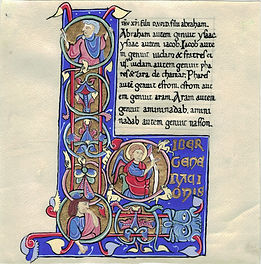 LIBER
GENE
RACI
ONIS
xpi filii david. filii abraham.
Abraham autem genuit ysaac
ysaac autem genuit iacob. Iacob aute
m genuit iudam & fratres ei
us. iudam autem genuit pha
res & zara de thamar. Phares
aute genuit esrom. esrom aut
em genuit aram. Aram autem
genuit aminadab. ami
nadab autem genuit nasson.